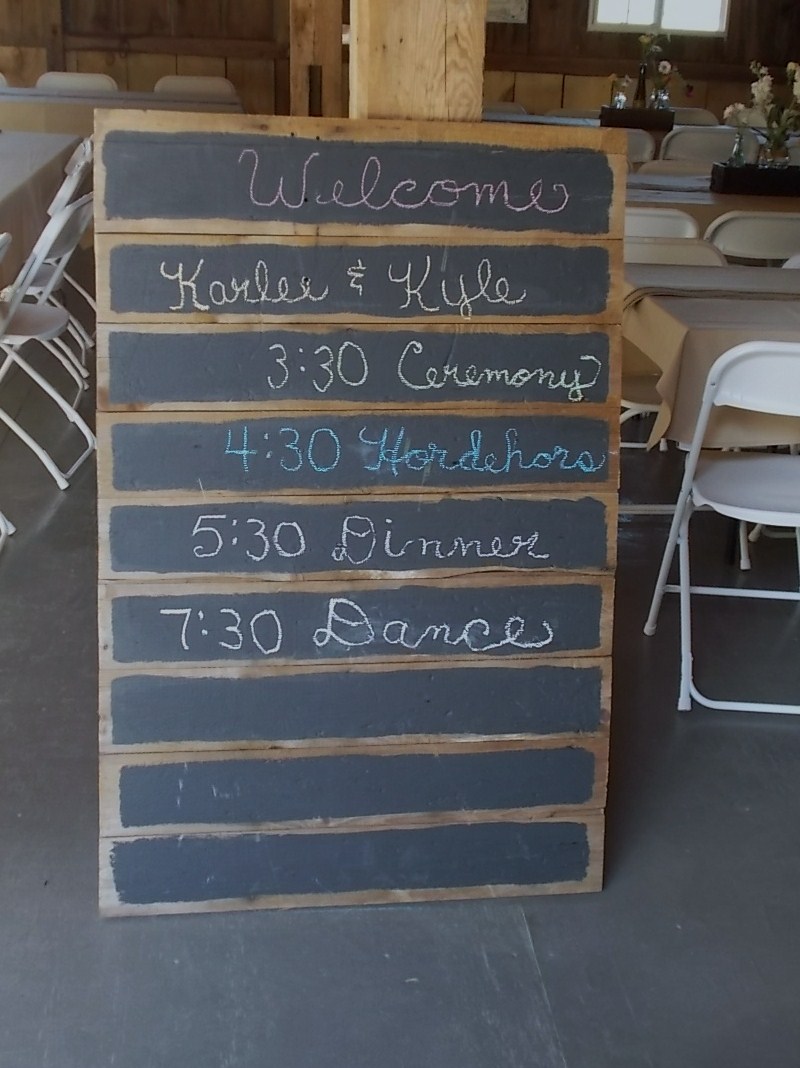 Welcome
Karlee & Kyle
3:30 Ceremony
4:30 Hordehors
5:30 Dinner
7:30 Dance